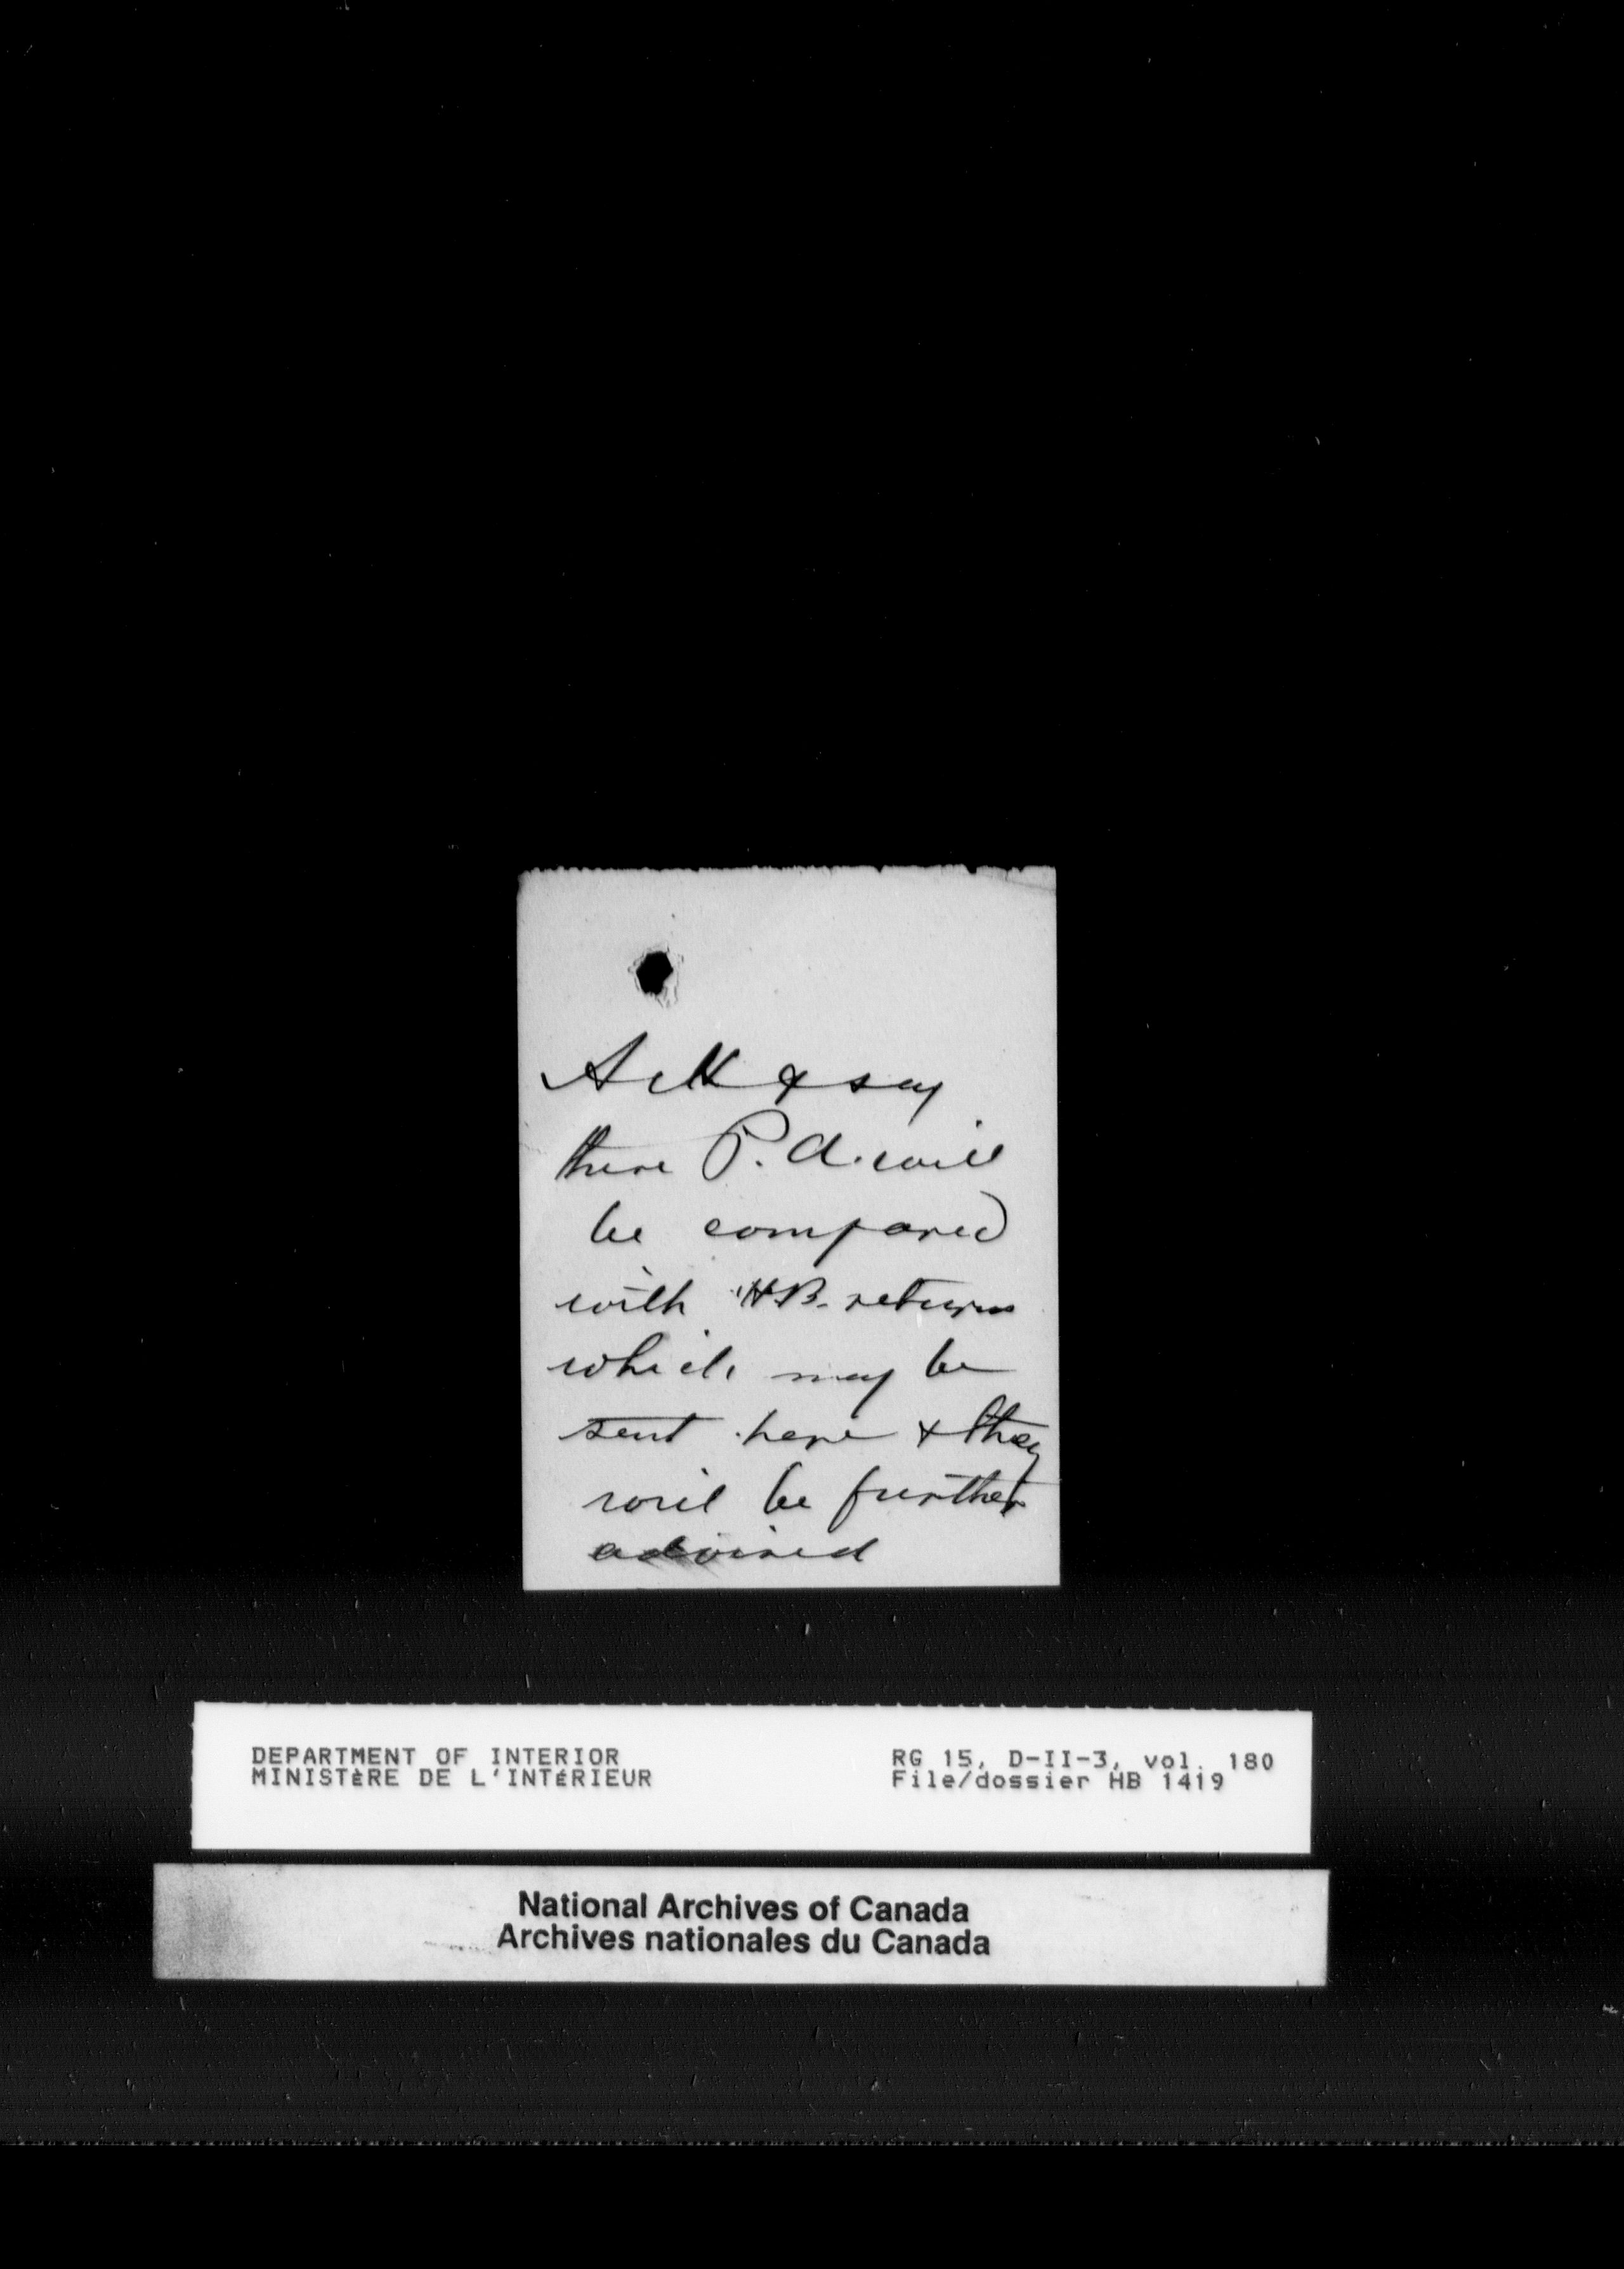 Ack & say
these P.A. will
be compared
with HB. returns
which may be
sent here & they
will be further
advised
DEPARTMENT OF INTERIOR
MINISTÈRE DE L'INTÉRIEUR
RG 15, D-II-3, vol. 180
File/dossier HB 1419
National Archives of Canada
Archives nationales du Canada